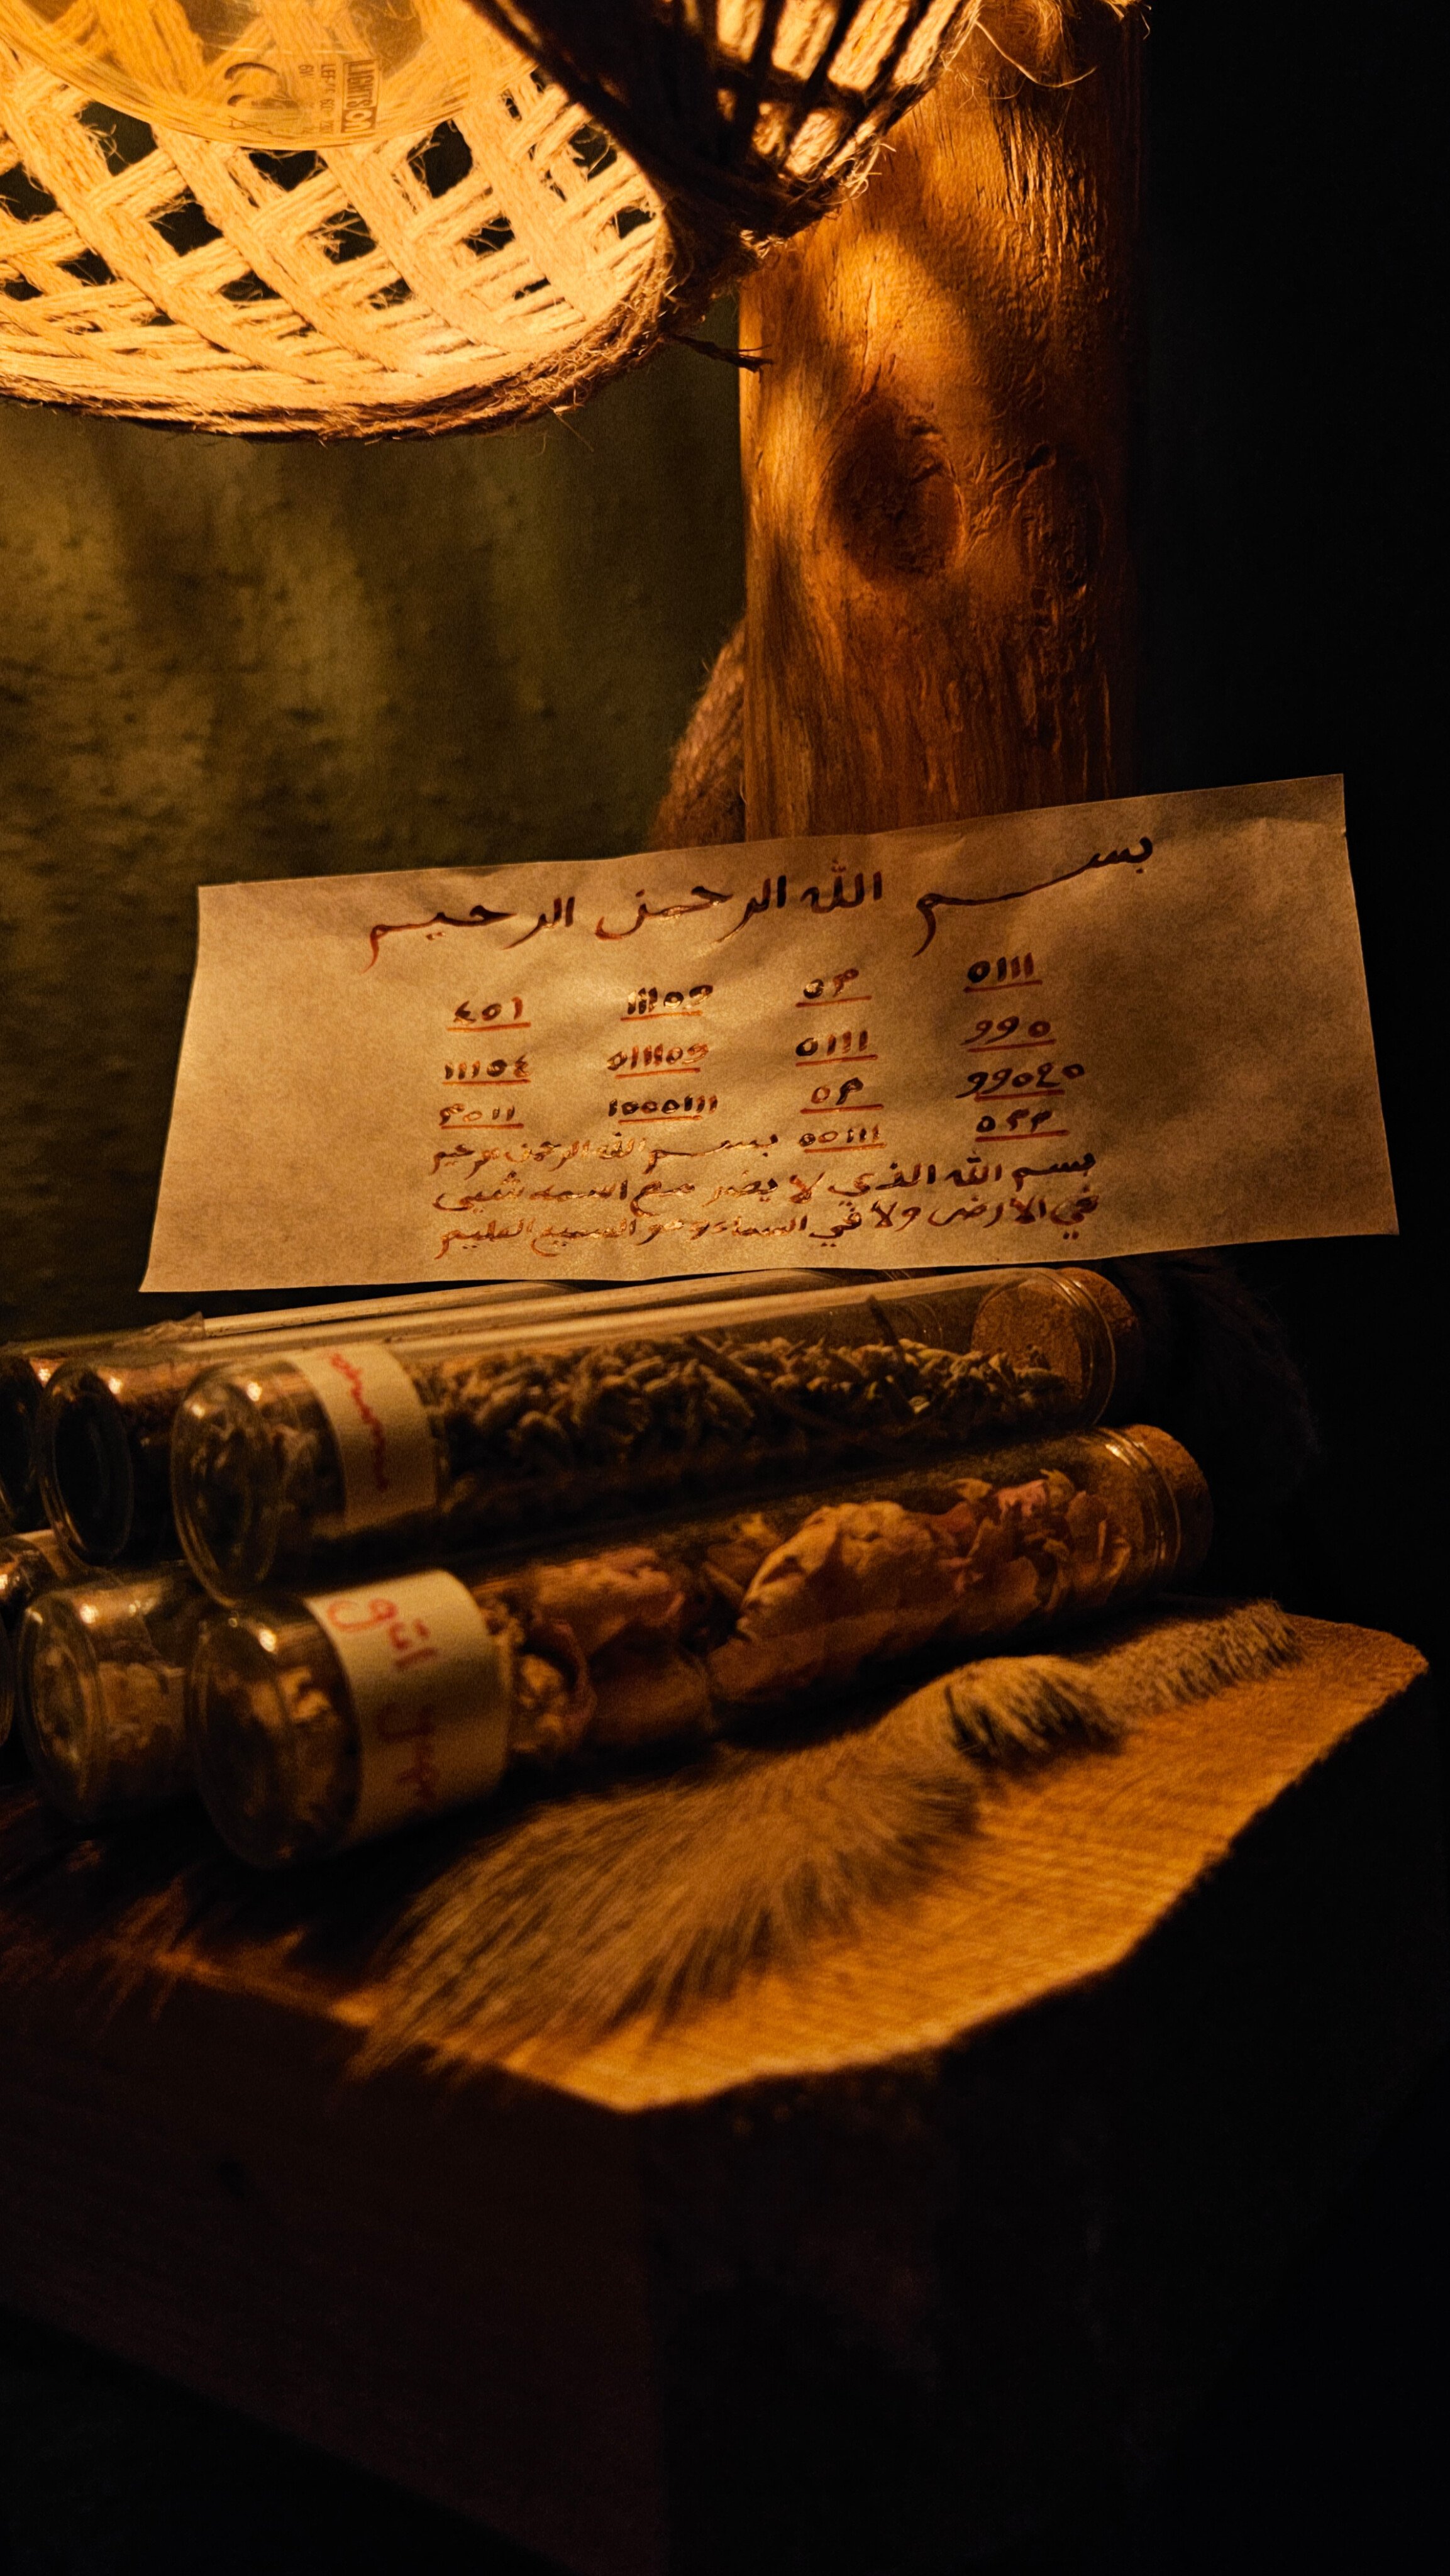 LIGHTSON
بسم الله الرحمن الرحيم
٥١١١ ٥٣ ١١١٥٩ ٤٥١
٩٩٥ ٥١١١ ٥١١١٥٩ ١١١٥٤
٩٩٥٤٥ ٥٣ ١٥٥٥١١١ ٣٥١١
٥٢٣ ٥٥١١١ بسم الله الرحمن رحيم
بسم الله الذي لا يضر مع اسمه شيئ
في الارض ولا في السماء وهو السميع العليم